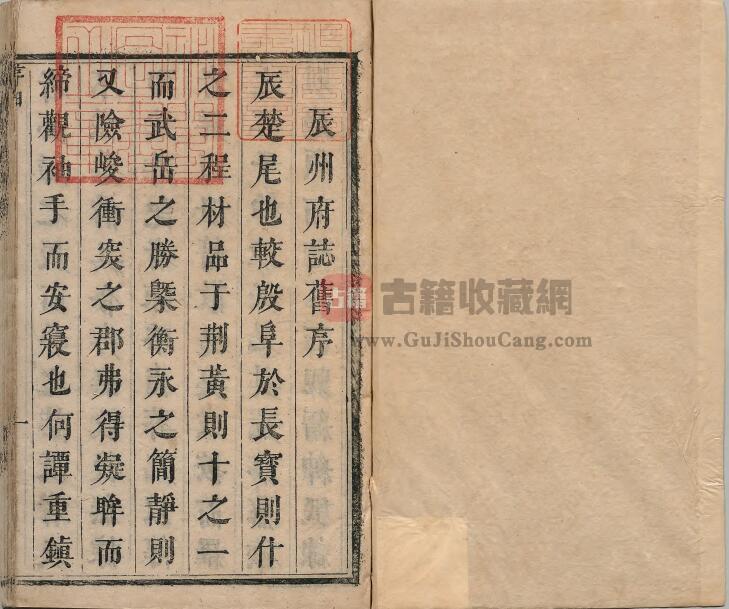 辰州府誌舊序
辰楚尾也較殷阜於長寶則什
之二程材品于荆黃則十之一
而武岳之勝槩衡永之簡靜則
又險峻衝突之郡弗得凝眸而
締觀袖手而安寢也何譚重鎮
一
古籍
古籍收藏網
www.GuJiShouCang.com